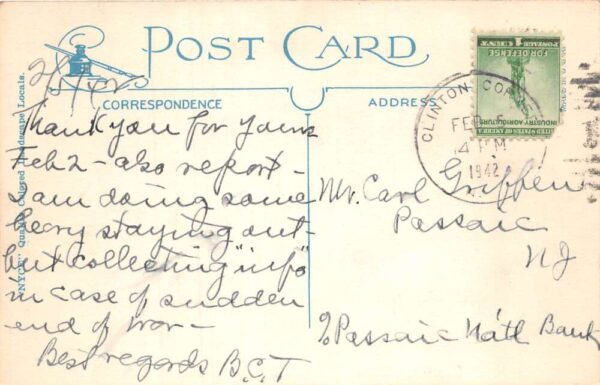 POST CARD
CORRESPONDENCE
ADDRESS
2/5/42
Thank you for yours
Feb 2 - also report -
I am doing some
heavy staying out -
but collecting "info"
in case of sudden
end of war -
Best regards B.C.T
Mr. Carl Griffen
Passaic
NJ
% Passaic Nat'l Bank
CLINTON, CO
FEB 5
4 PM
1942
UNITED STATES OF AMERICA
INDUSTRY AGRICULTURE
FOR DEFENSE
1 CENT
POSTAGE
"NYCE" Quality Colored Landscape Locals.